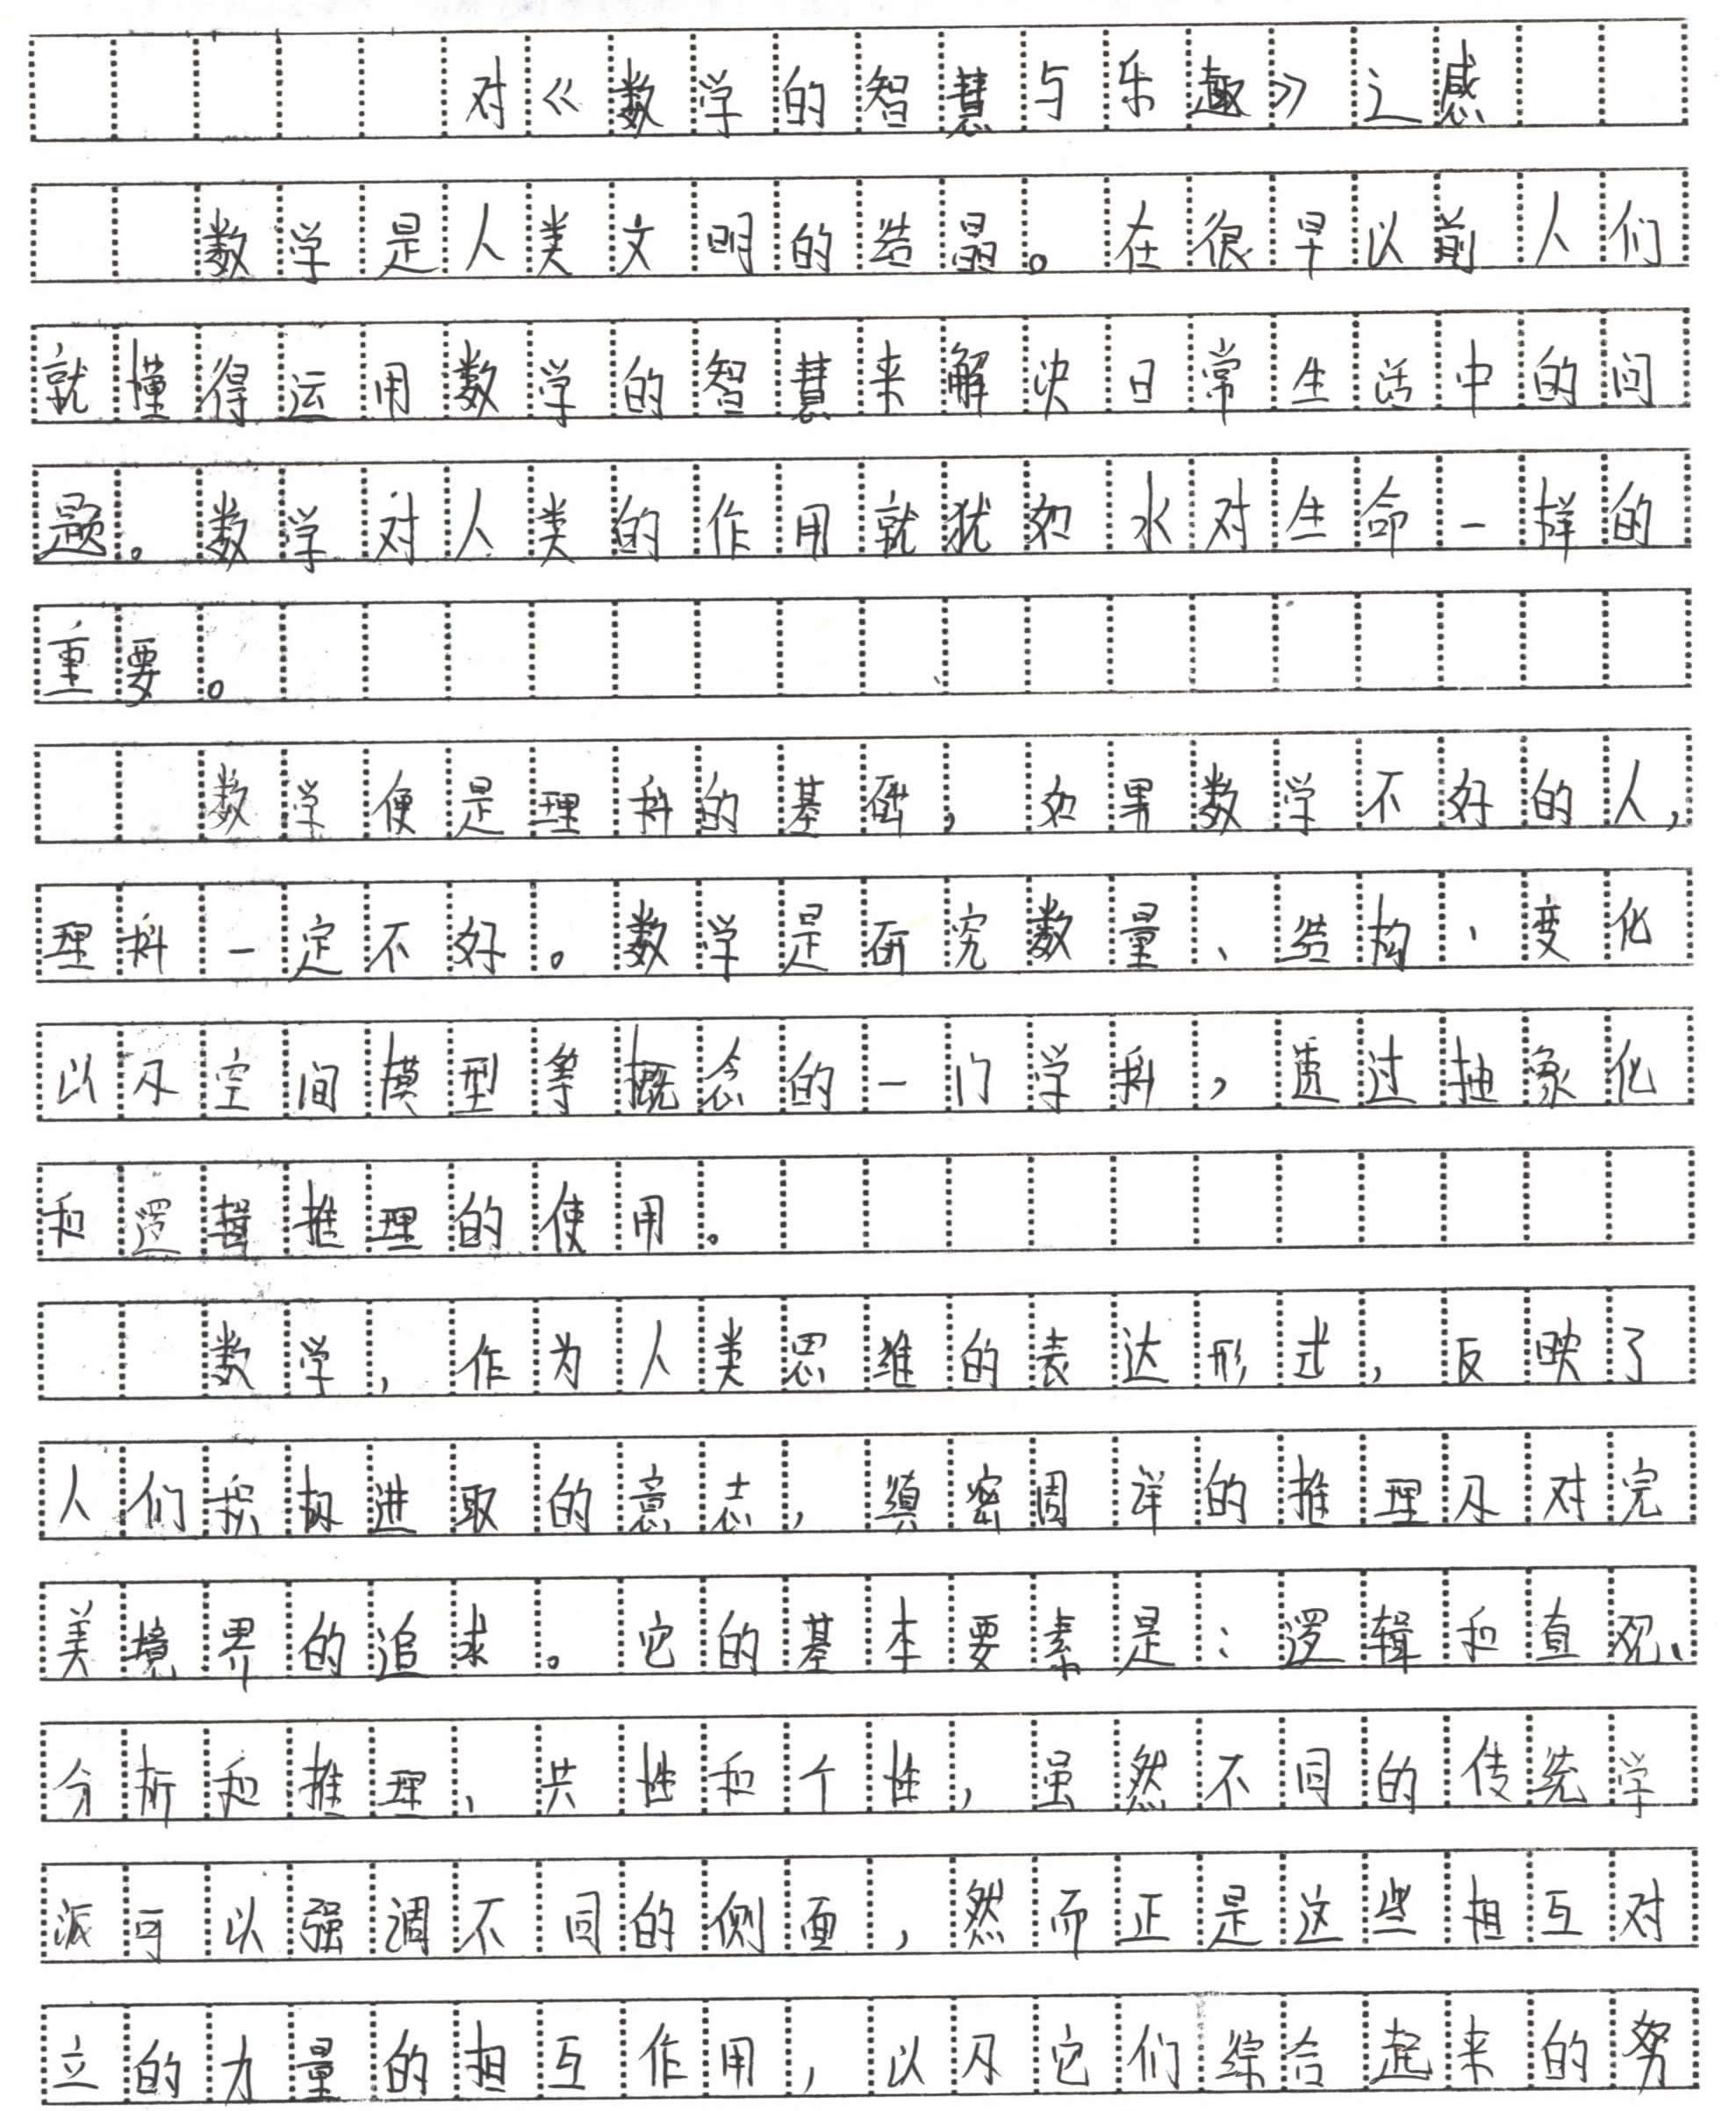 对《数学的智慧与乐趣》之感
数学是人类文明的结晶。在很早以前人们
就懂得运用数学的智慧来解决日常生活中的问
题。数学对人类的作用就犹如水对生命一样的
重要。
数学便是理科的基础，如果数学不好的人，
理科一定不好。数学是研究数量、结构、变化
以及空间模型等概念的一门学科，透过抽象化
和逻辑推理的使用。
数学，作为人类思维的表达形式，反映了
人们积极进取的意志，缜密周详的推理及对完
美境界的追求。它的基本要素是：逻辑和直观、
分析和推理、共性和个性，虽然不同的传统学
派可以强调不同的侧面，然而正是这些相互对
立的力量的相互作用，以及它们综合起来的努